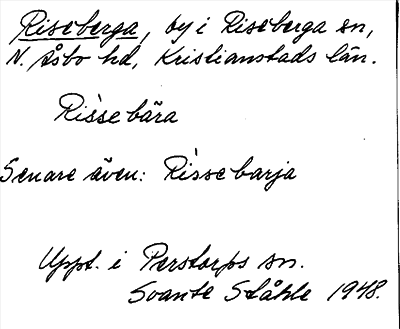 Riseberga, by i Riseberga sn,
N. Åsbo hd, Kristianstads län.
Rìsse bära
Senare även: Rìsse barja
Uppt. i Perstorps sn.
Svante Ståhle 1948.